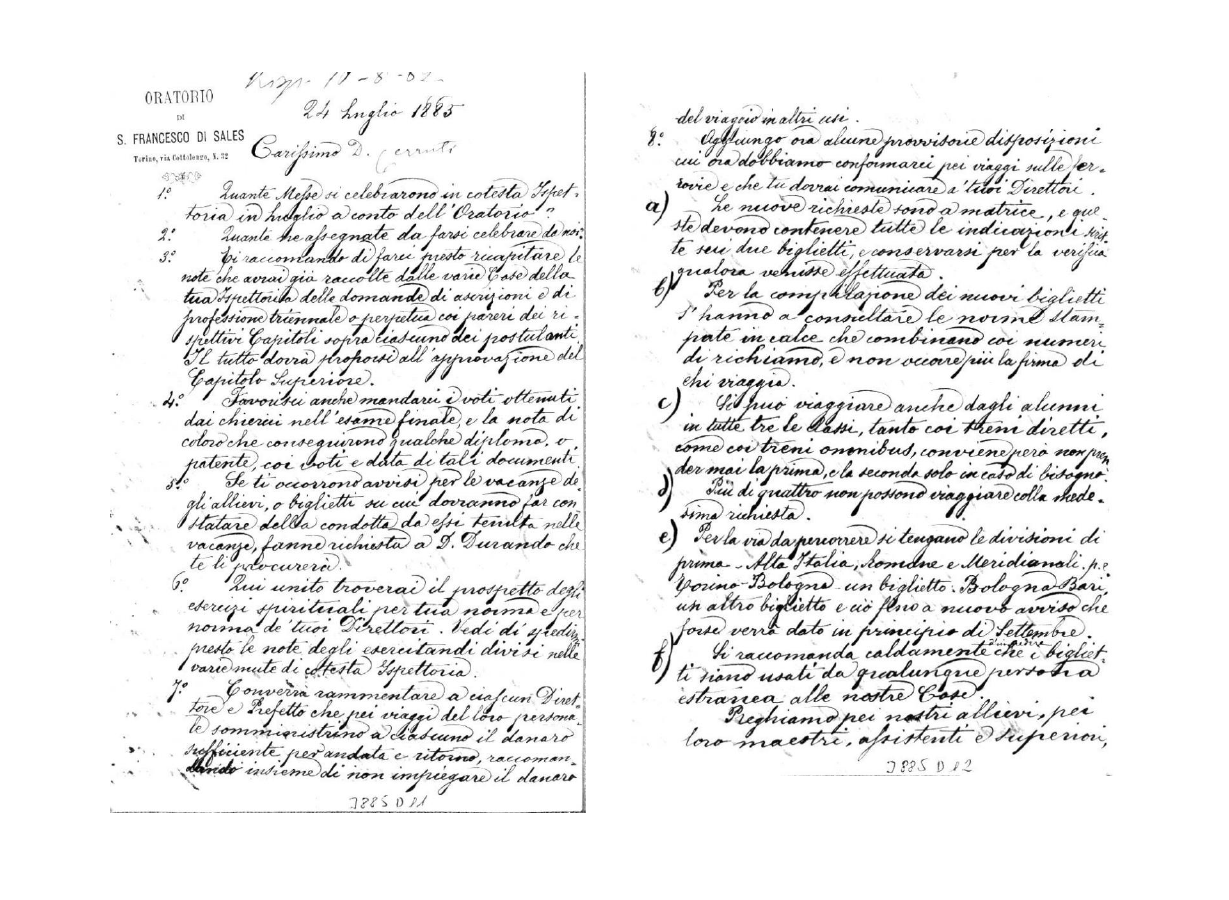 Risp. 11-8-82
ORATORIO
DI
S. FRANCESCO DI SALES
Torino, via Cottolengo, N. 32
24 Luglio 1885
Carissimo D. Cerruti
1.° Quante Messe si celebrarono in cotesta Ispet-
toria in Luglio a conto dell'Oratorio
2.° Quante ne assegnate da farsi celebrare da noi.
3.° Ti raccomando di farci presto ricapitare le
note che avrai già raccolte dalle varie Case della
tua Ispettoria delle domande di ascrizioni e di
professione triennale o perpetua coi pareri dei ri-
spettivi Capitoli sopra ciascuno dei postulanti
Il tutto dovrà proporsi all'approvazione del
Capitolo Superiore.
4.° Favorisci anche mandarci i voti ottenuti
dai chierici nell'esame finale, e la nota di
coloro che conseguirono qualche diploma, o
patente, coi voti e data di tali documenti
5.° Se ti occorrono avvisi per le vacanze de-
gli allievi, o biglietti su cui dovranno far con
statare della condotta da essi tenuta nelle
vacanze, fanne richiesta a D. Durando che
te li procurerà.
6.° Qui unito troverai il prospetto degli
esercizi spirituali per tua norma e per
norma de' tuoi Direttori. Vedi di spedirmi
presto le note degli esercitandi divisi nelle
varie mute di cotesta Ispettoria.
7.° Converrà rammentare a ciascun Diret-
tore e Prefetto che pei viaggi del loro persona-
le somministrino a ciascuno il danaro
sufficiente per andata e ritorno, raccoman-
dando insieme di non impiegare il danaro
1885 D 11
del viaggio in altri usi.
8.° Aggiungo ora alcune provvisorie disposizioni
cui ora dobbiamo conformarci pei viaggi sulle fer-
rovie e che tu dovrai comunicare a' tuoi Direttori.
a) Le nuove richieste sono a matrice, e que-
ste devono contenere tutte le indicazioni scrit-
te sei due biglietti, e conservarsi per la verifica
qualora venisse effettuata.
b) Per la compilazione dei nuovi biglietti
s'hanno a consultare le norme stam-
pate in calce che combinano coi numeri
di richiamo, e non occorre più la firma di
chi viaggia.
c) Si può viaggiare anche dagli alunni
in tutte tre le classi, tanto coi treni diretti,
come coi treni omnibus, conviene però non pren
der mai la prima, e la seconda solo in caso di bisogno.
d) Più di quattro non possono viaggiare colla mede-
sima richiesta.
e) Per la via da percorrere si tengano le divisioni di
prima - Alta Italia, Romane e Meridianali. p.e
Torino-Bologna un biglietto. Bologna Bari,
un altro biglietto e ciò fino a nuovo avviso che
forse verrà dato in principio di Settembre.
f) Si raccomanda caldamente che i bigliet-
ti siano usati da qualunque persona
estranea alle nostre Case.
Preghiamo pei nostri allievi, pei
loro maestri, assistenti e superiori,
1885 D 12